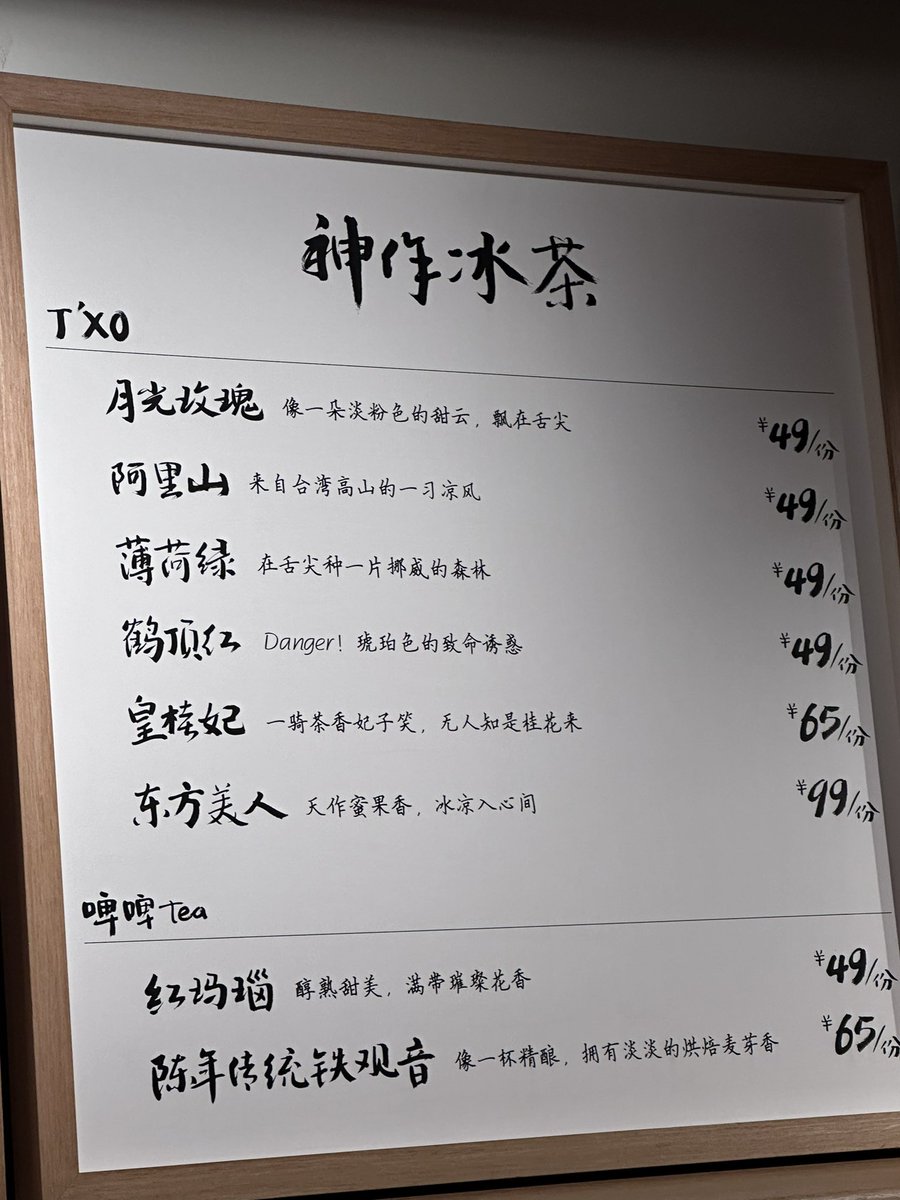 神作冰茶
T'XO
月光玫瑰 像一朵淡粉色的甜云，飘在舌尖 ¥49/份
阿里山 来自台湾高山的一习凉风 ¥49/份
薄荷绿 在舌尖种一片挪威的森林 ¥49/份
鹤顶红 Danger! 琥珀色的致命诱惑 ¥49/份
皇桂妃 一骑茶香妃子笑，无人知是桂花来 ¥65/份
东方美人 天作蜜果香，冰凉入心间 ¥99/份
啤啤Tea
红玛瑙 醇熟甜美，满带璀璨花香 ¥49/份
陈年传统铁观音 像一杯精酿，拥有淡淡的烘焙麦芽香 ¥65/份